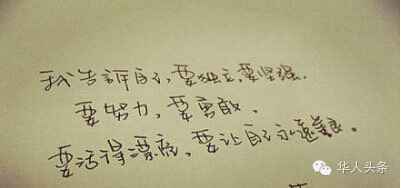 我告诉自己，要独立，要坚强.
要努力，要勇敢.
要活得漂亮，要让自己永远善良。
华人头条